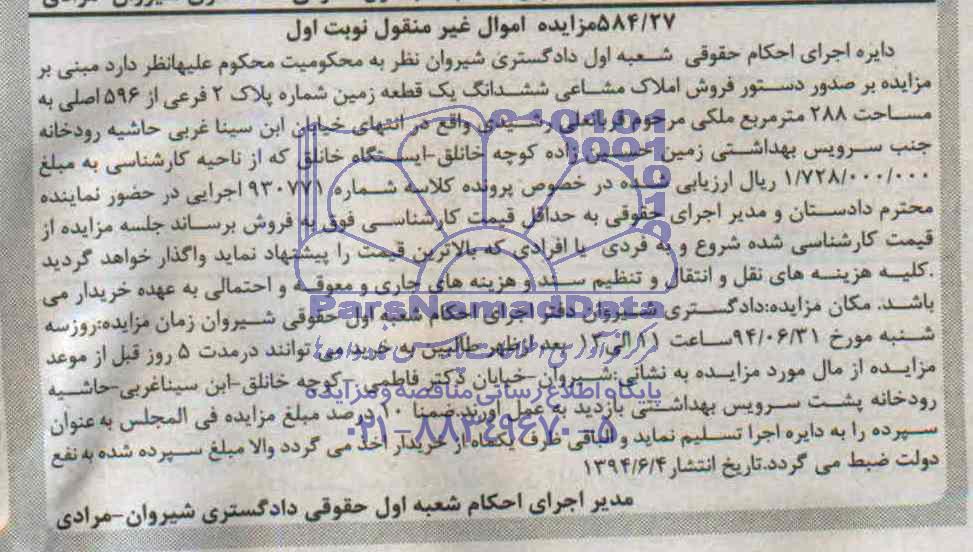 ۵۸۴/۲۷مزایده اموال غیر منقول نوبت اول
دایره اجرای احکام حقوقی شعبه اول دادگستری شیروان نظر به محکومیت محکوم علیهانظر دارد مبنی بر
مزایده بر صدور دستور فروش املاک مشاعی ششدانگ یک قطعه زمین شماره پلاک ۲ فرعی از ۵۹۶ اصلی به
مساحت ۲۸۸ مترمربع ملکی مرحوم قربانعلی رشیدی واقع در انتهای خیابان ابن سینا غربی حاشیه رودخانه
جنب سرویس بهداشتی زمین حسین زاده کوچه خانلق-ایستگاه خانلق که از ناحیه کارشناسی به مبلغ
۱/۷۲۸/۰۰۰/۰۰۰ ریال ارزیابی شده در خصوص پرونده کلاسه شماره ۹۳۰۷۷۱ اجرایی در حضور نماینده
محترم دادستان و مدیر اجرای حقوقی به حداقل قیمت کارشناسی فوق به فروش برساند جلسه مزایده از
قیمت کارشناسی شده شروع و به فردی یا افرادی که بالاترین قیمت را پیشنهاد نماید واگذار خواهد گردید
.کلیه هزینه های نقل و انتقال و تنظیم سند و هزینه های جاری و معوقه و احتمالی به عهده خریدار می
باشد. مکان مزایده:دادگستری شیروان دفتر اجرای احکام شعبه اول حقوقی شیروان زمان مزایده:روزسه
شنبه مورخ ۹۴/۰۶/۳۱ساعت ۱۱ الی ۱۲ بعد ازظهر طالبین به خرید می توانند درمدت ۵ روز قبل از موعد
مزایده از مال مورد مزایده به نشانی:شیروان-خیابان دکتر فاطمی -کوچه خانلق-ابن سیناغربی-حاشیه
رودخانه پشت سرویس بهداشتی بازدید به عمل آورند.ضمنا ۱۰ درصد مبلغ مزایده فی المجلس به عنوان
سپرده را به دایره اجرا تسلیم نماید و الباقی ظرف یکماه از خریدار اخذ می گردد والا مبلغ سپرده شده به نفع
دولت ضبط می گردد.تاریخ انتشار ۱۳۹۴/۶/۴
مدیر اجرای احکام شعبه اول حقوقی دادگستری شیروان-مرادی
ParsNamadData
پایگاه اطلاع رسانی مناقصه و مزایده
۰۲۱-۸۸۳۴۹۶۷۰-۵